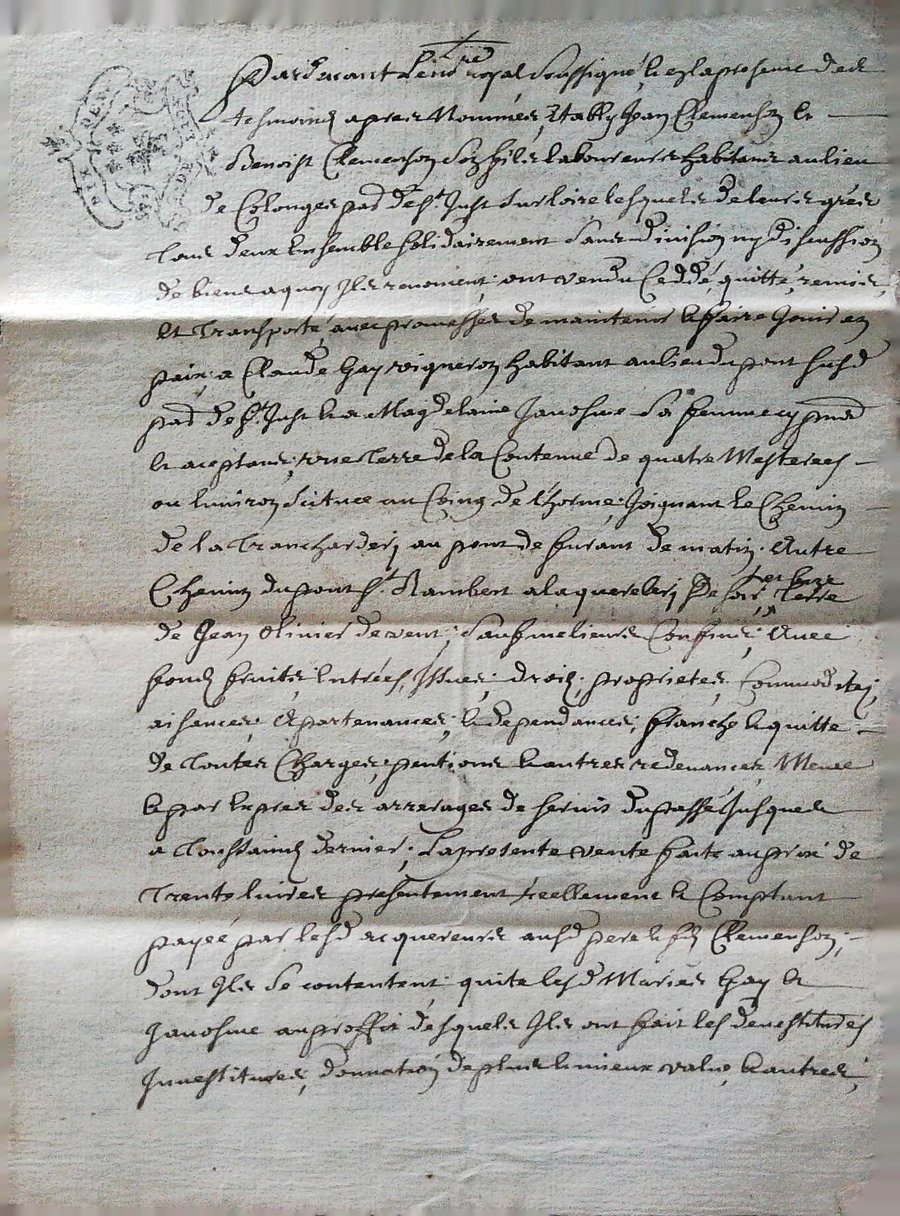 Pardevant le no.re royal soussigné, & en la presence des
tesmoins apres nommes, Estably Jean Clemenson &
Benoist Clemenson son fils laboureurs habitans au lieu
de Colonges par. de St. Just sur loire lesquels de leurs grés
tous deux ensemble solidairement sans division ny discussion
de biens a quoy Ils renoncent, ont vendu Ceddé, quitté, remis,
et transporté, avec promesses de maintenir & faire Jouir en
paix, a Claude Gay vigneron habitant au lieu du pont susd
par. de St. Just & a Magdelaine Janosme sa femme cy pnte
& aceptans, une Terre de la Contenue de quatre Mesterees
ou Environ Scituee au Coing de l'horme, Joignant le Chemin
de la Trancharderj au pont de furant de matin. Autre
Chemin du pont St. Rambert a la querelerj de soir, Terre
de Jean Olinier de vent; sauf meilleurs Confins, Avec
fonds fruits, Entrées, Issues, droits, proprietes, Commoditez,
aisances, Apartenances, & dependances, franche & quitte
de toutes Charges, pentions & autres redevances Mesme
& par Expres des arrerages de servis du passé Jusques
a Toussaincts dernier; La presente vente faite au prix de
Trente livres presentement reellement & Comptant
payée par lesd acquereurs ausd pere & fils Clemenson;
dont Ils se contentent, quite lesd Maries Gay &
Janosme au proffit desquels Ils ont fait les devestitures
Investitures, donnation de plus & mieux value, & autres,